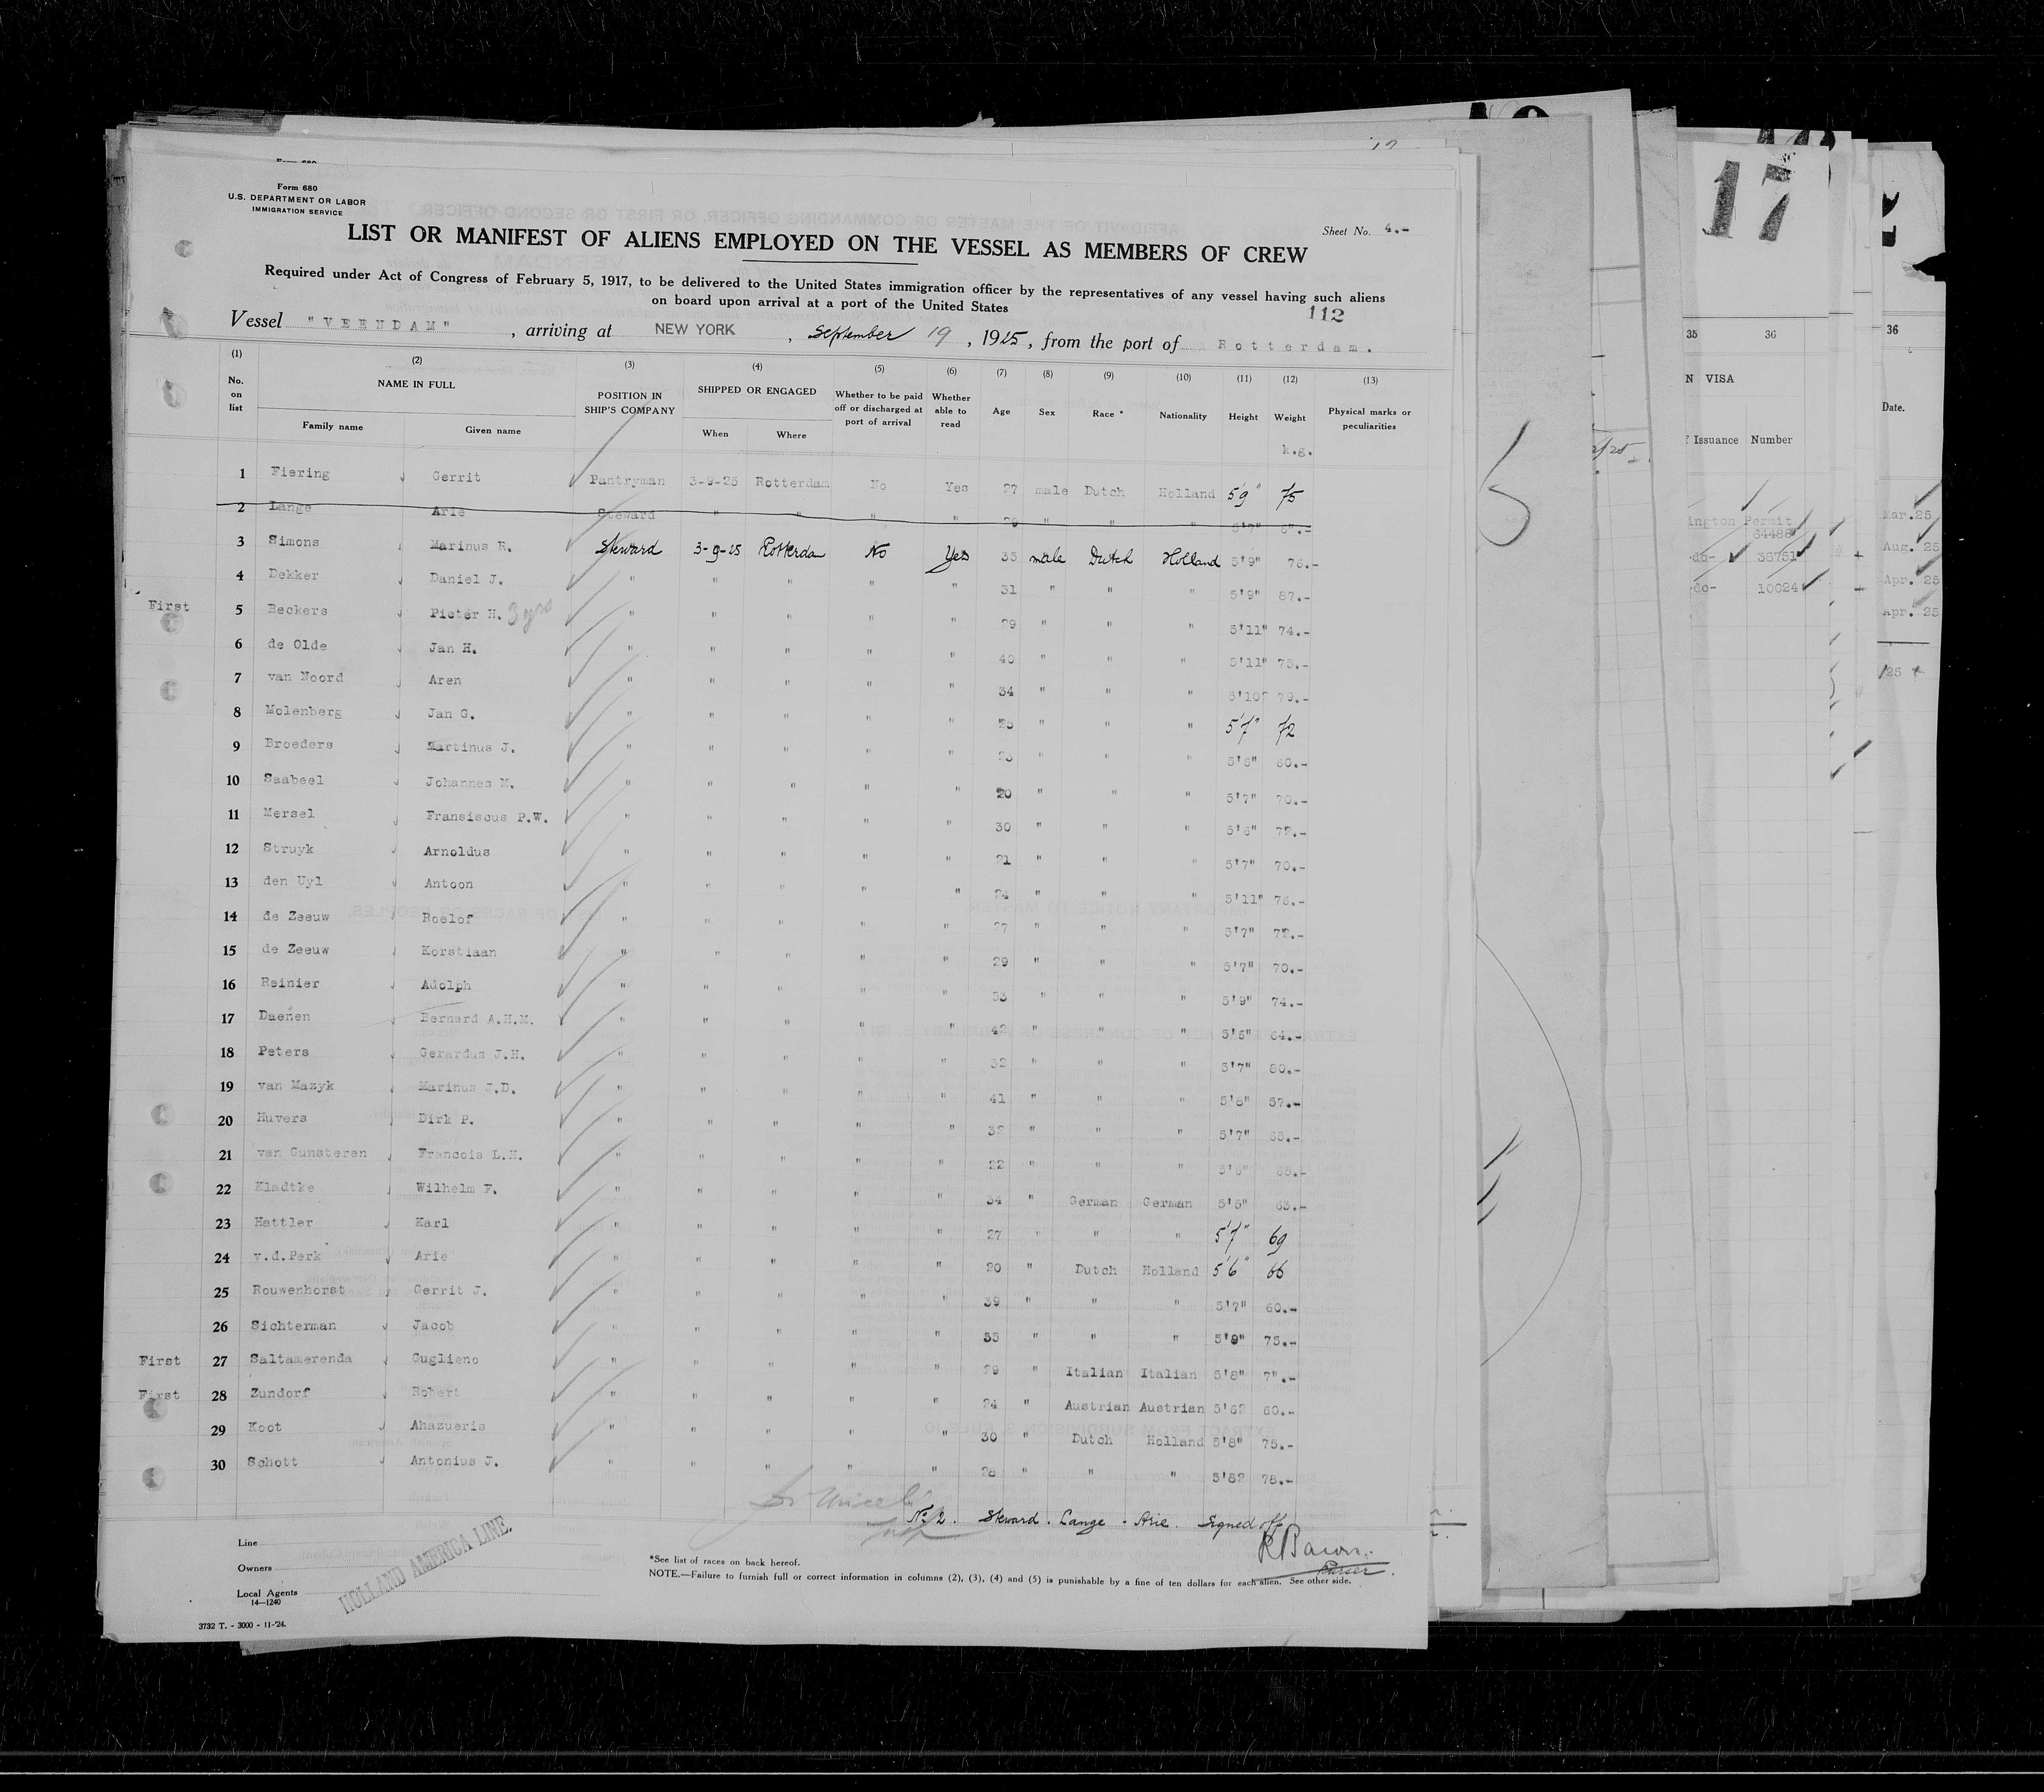 Form 680
U.S. DEPARTMENT OR LABOR
IMMIGRATION SERVICE
Sheet No. 4.-
LIST OR MANIFEST OF ALIENS EMPLOYED ON THE VESSEL AS MEMBERS OF CREW
Required under Act of Congress of February 5, 1917, to be delivered to the United States immigration officer by the representatives of any vessel having such aliens
on board upon arrival at a port of the United States
112
Vessel "VEENDAM", arriving at NEW YORK, September 19, 1925, from the port of Rotterdam.
(1) (2) (3) (4) (5) (6) (7) (8) (9) (10) (11) (12) (13)
No. on list NAME IN FULL POSITION IN SHIP'S COMPANY SHIPPED OR ENGAGED Whether to be paid off or discharged at port of arrival Whether able to read Age Sex Race * Nationality Height Weight Physical marks or peculiarities
Family name Given name When Where k.g.
1 Fiering Gerrit Pantryman 3-9-25 Rotterdam No Yes 27 male Dutch Holland 5'9" 75
2 Lange Arie Steward " " " " 29 " " " 5'7"
3 Simons Marinus R. Steward 3-9-25 Rotterdam No Yes 35 male Dutch Holland 5'9" 76.-
4 Dekker Daniel J. " " " " " 31 " " " 5'9" 87.-
First 5 Beckers Pieter H. 3 yrs " " " " " 29 " " " 5'11" 74.-
6 de Olde Jan H. " " " " " 40 " " " 5'11" 75.-
7 van Noord Aren " " " " " 34 " " " 5'10? 79.-
8 Molenberg Jan G. " " " " " 25 " " " 5'7" 72
9 Broeders Martinus J. " " " " " 23 " " " 5'6" 60.-
10 Saabeel Johannes M. " " " " " 20 " " " 5'7" 70.-
11 Mersel Fransiscus P.W. " " " " " 30 " " " 5'6" 72.-
12 Struyk Arnoldus " " " " " 21 " " " 5'7" 70.-
13 den Uyl Antoon " " " " " 24 " " " 5'11" 76.-
14 de Zeeuw Roelof " " " " " 27 " " " 5'7" 72.-
15 de Zeeuw Korstiaan " " " " " 29 " " " 5'7" 70.-
16 Reinier Adolph " " " " " 33 " " " 5'9" 74.-
17 Daenen Bernard A.H.M. " " " " " 42 " " " 5'5" 64.-
18 Peters Gerardus J.H. " " " " " 32 " " " 5'7" 80.-
19 van Mazyk Marinus J.D. " " " " " 41 " " " 5'8" 57.-
20 Huvers Dirk P. " " " " " 32 " " " 5'7" 65.-
21 van Gunsteren Francois L.H. " " " " " 22 " " " 5'6" 65.-
22 Kladtke Wilhelm F. " " " " " 34 " German German 5'5" 63.-
23 Hettler Karl " " " " " 27 " " " 5'7" 69
24 v.d.Perk Arie " " " " " 20 " Dutch Holland 5'6" 66
25 Rouwenhorst Gerrit J. " " " " " 39 " " " 5'7" 60.-
26 Sichterman Jacob " " " " " 35 " " " 5'9" 75.-
First 27 Saltamerenda Guglieno " " " " " 29 " Italian Italian 5'8"
First 28 Zundorf Robert " " " " " 24 " Austrian Austrian 5'6? 60.-
29 Koot Ahazueris " " " " " 30 " Dutch Holland 5'8" 75.-
30 Schott Antonius J. " " " " " 28 " " " 5'8? 78.-
No 2. Steward. Lange - Arie. Signed off
Purser.
Line
Owners
Local Agents
HOLLAND AMERICA LINE.
14—1240
*See list of races on back hereof.
NOTE.—Failure to furnish full or correct information in columns (2), (3), (4) and (5) is punishable by a fine of ten dollars for each alien. See other side.
3732 T. - 3000 - 11-'24.
17
35 36
N VISA
f Issuance Number
ington Permit
64486
-do- 36751
-do- 10024
36
Date.
Mar.25
Aug. 25
Apr. 25
Apr. 25